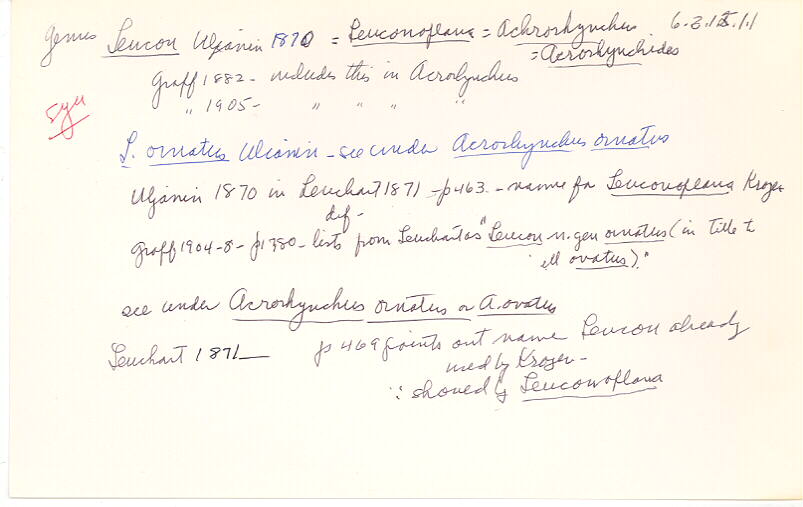 genus Leucon Uljanin 1870 = Leuconoplana = Achrorhynchus 6.3.15.1.1
= Acrorhynchides
Graff 1882 - includes this in Acrorhynchus
" 1905 - " " " "
syn
L. ornatus Ulianin - see under Acrorhynchus ornatus
Uljanin 1870 in Leuchart 1871 - p463 - name for Leuconoplana Kroyer
dif -
Graff 1904-8 - p1380 - lists from Leuchart as "Leucon n.gen ornatus (in title to
ill ovatus)."
see under Acrorhynchus ornatus or A. ovatus
Leuchart 1871 — p 469 points out name Leucon already
used by Kroyer -
∵ should be Leuconoplana